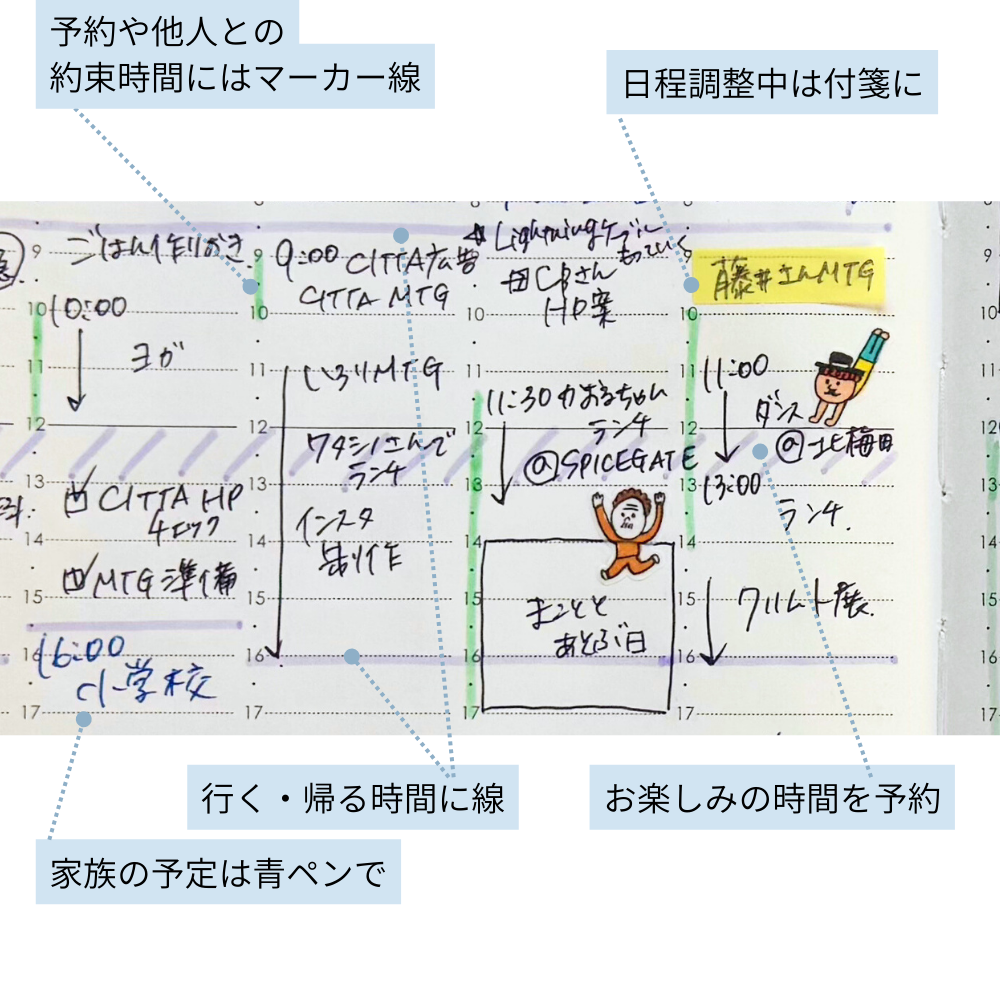 予約や他人との
約束時間にはマーカー線
日程調整中は付箋に
8
9
10
11
12
13
14
15
16
17
ごはん作りおき
10:00
ヨガ
CITTA HP
チェック
MTG準備
16:00
小学校
9
10
11
12
13
14
15
16
17
9:00 CITTA広告
CITTA MTG
いろりMTG
ワタシノさんで
ランチ
インスタ
制作
12
13
14
15
16
17
10
11
Lightningケーブル
もっていく
さん
HP案
11:30 かおるちゃん
ランチ
@SPICEGATE
まことと
あそぶ日
9
10
11
12
13
14
15
16
17
藤井さんMTG
11:00
ダンス
@北梅田
13:00
ランチ.
クリムト展.
行く・帰る時間に線
お楽しみの時間を予約
家族の予定は青ペンで